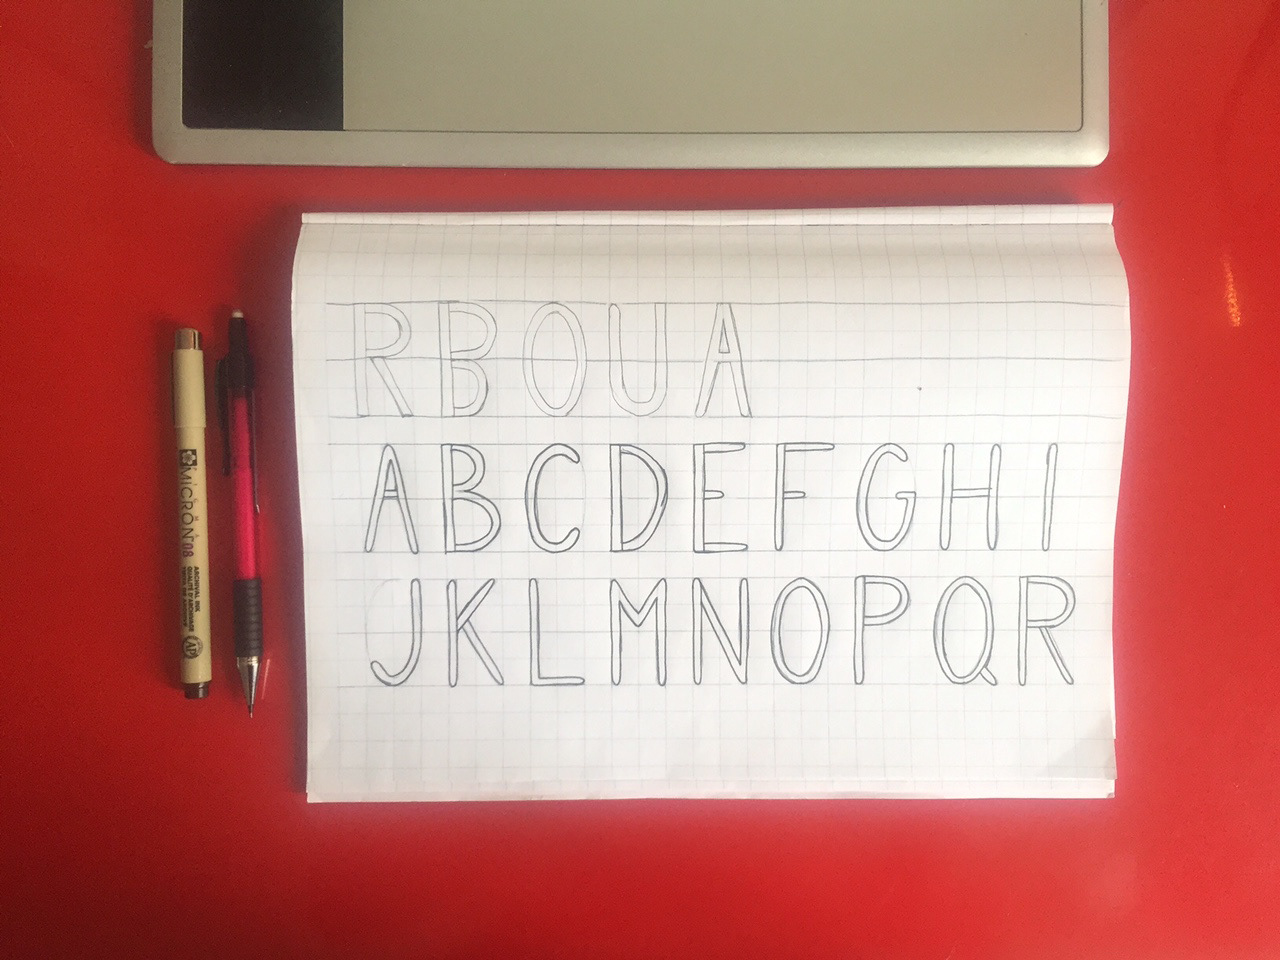 R B O U A
A B C D E F G H I
J K L M N O P Q R
MICRON 08
ARCHIVAL INK
AP